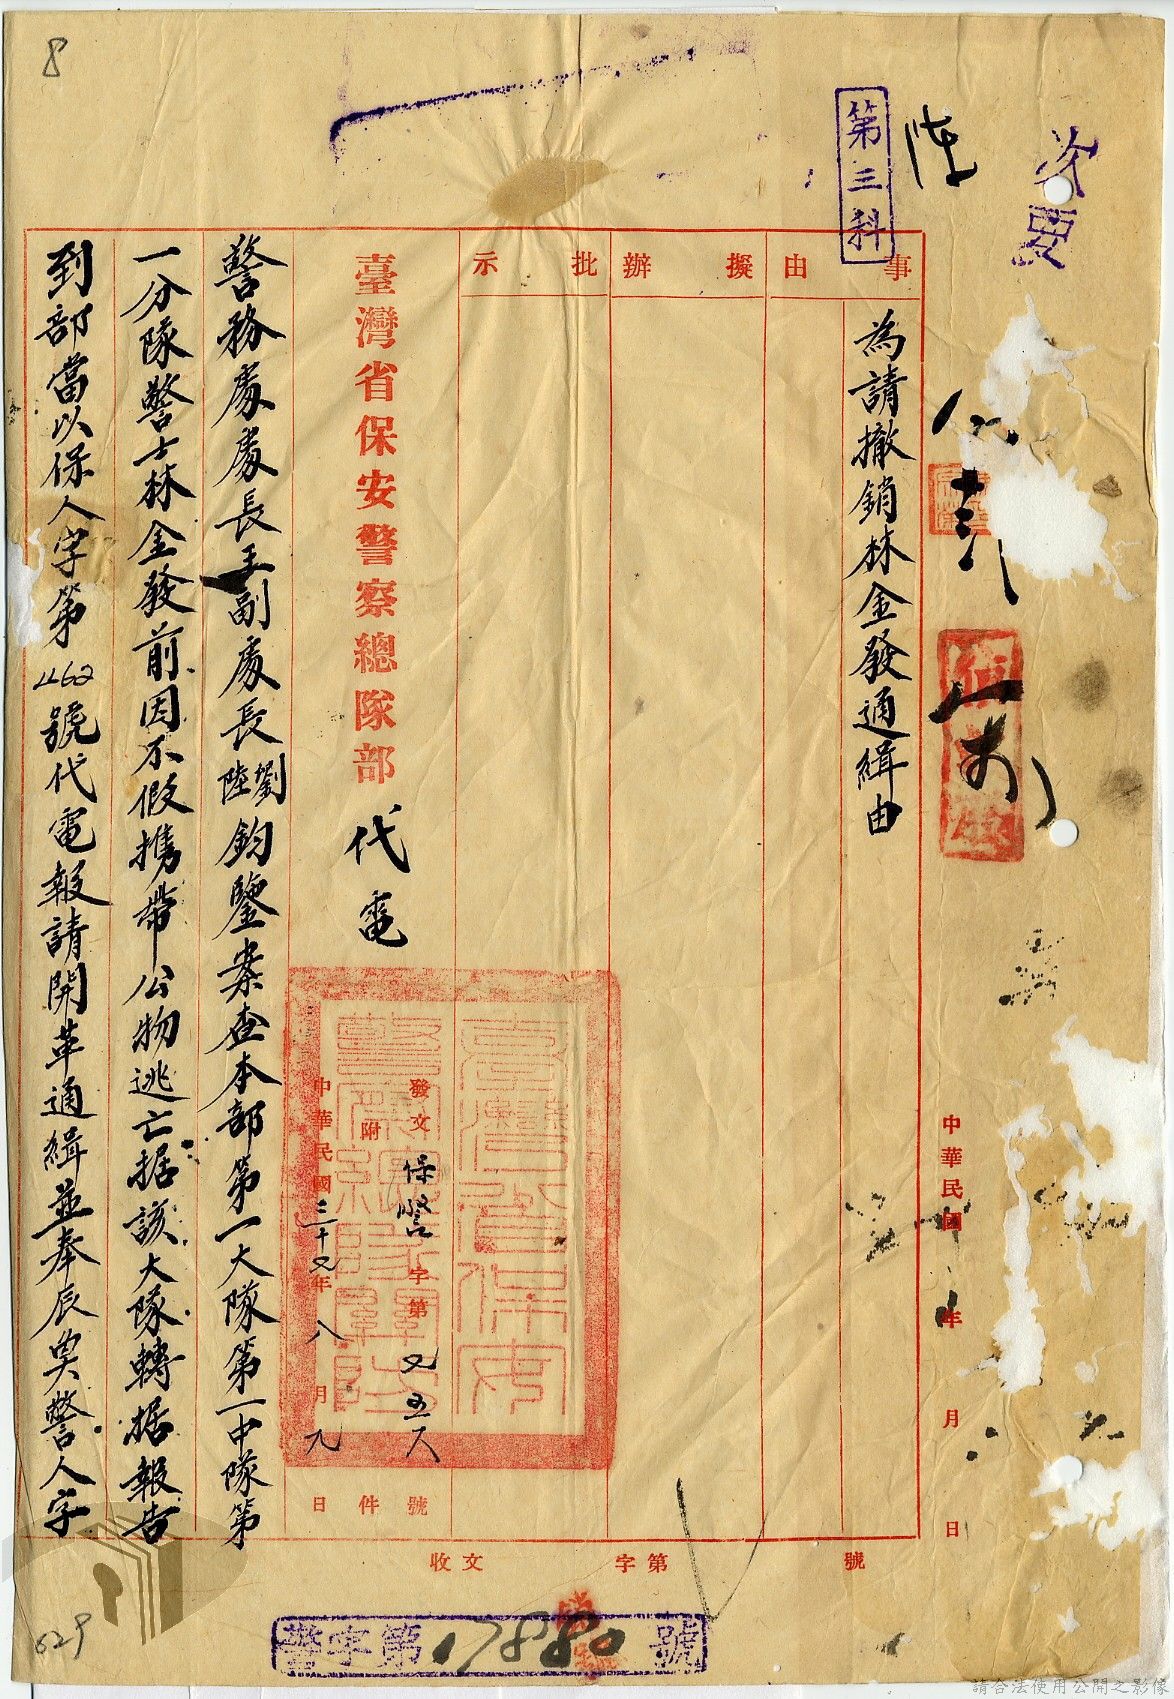 8
次要
第三科
事由
擬辦
批示
為請撤銷林金發通緝由
中華民國 年 月 日
臺灣省保安警察總隊部代電
臺灣省保安
警察總隊關防
發文 保警 字第 號
附 件
中華民國三十又年八月九日
警務處處長王副處長劉陸鈞鑒案查本部第一大隊第一中隊第
一分隊警士林金發前因不假携帶公物逃亡据該大隊轉据報告
到部當以保人字第462號代電報請開革通緝並奉辰 警人字
收文 字第 號
警字第17880號
029
請合法使用公開之影像